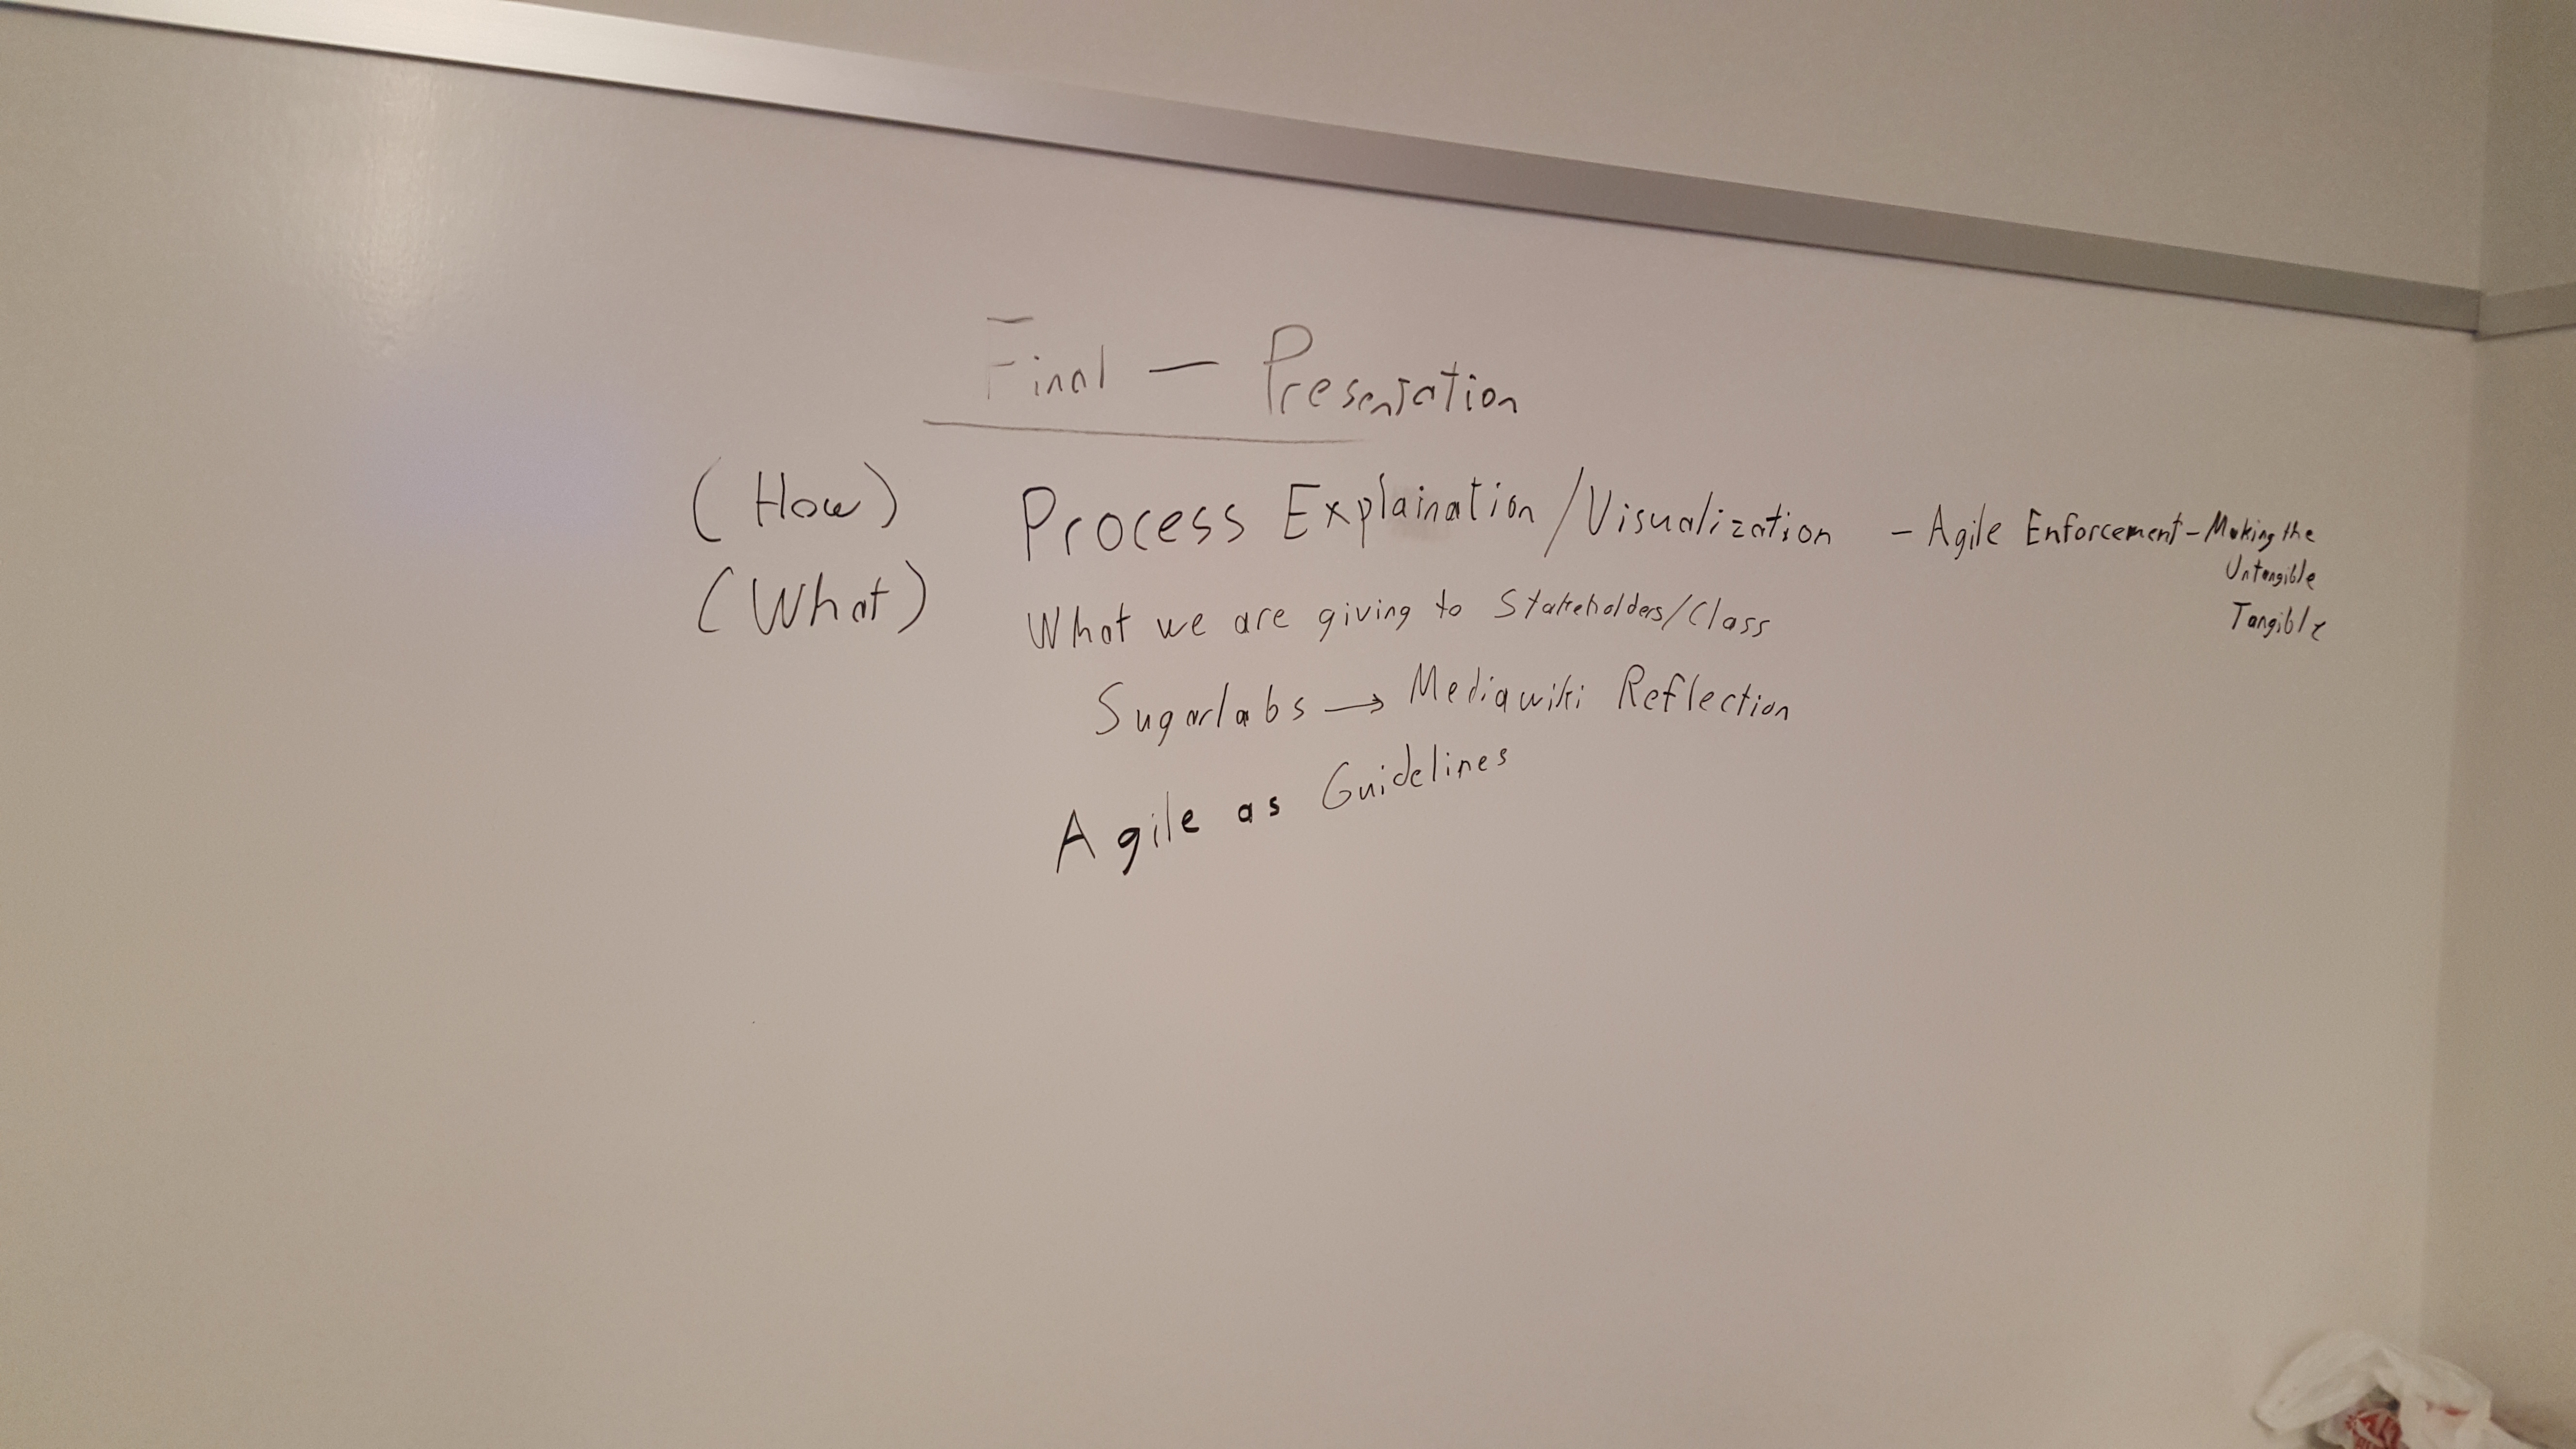 Final — Presentation
(How) Process Explaination/Visualization - Agile Enforcement - Making the
Untangible
Tangible
(What) What we are giving to Stakeholders/Class
Sugarlabs → Mediawiki Reflection
Agile as Guidelines